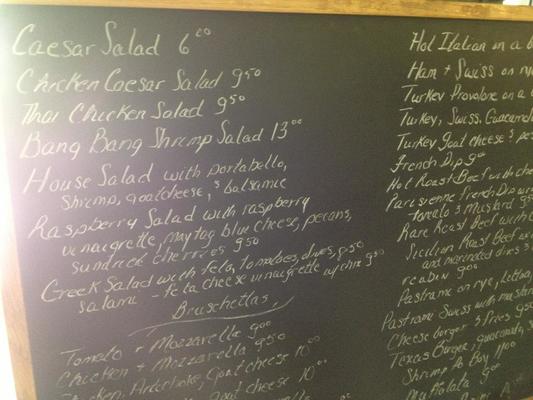 Caesar Salad 6.00
Chicken Caesar Salad 9.50
Thai Chicken Salad 9.50
Bang Bang Shrimp Salad 13.00
House Salad with portabello,
Shrimp, goatcheese, & balsamic
Raspberry Salad with raspberry
vinaigrette, maytag blue cheese, pecans,
sundried cherries 9.50
Greek Salad with feta, tomatoes, olives, 8.50
salami - feta cheese vinaigrette w/chix 9.50
Bruschettas
Tomato + Mozzarella 9.00
Chicken + Mozzarella 9.50
Chicken, Artichoke, Goat cheese 10.00
Goat cheese 10.00
Hot Italian on a
Ham + Swiss on rye
Turkey Provolone on a
Turkey, Swiss, Guacamole
Turkey goat cheese &
French Dip 9.00
Hot Roast Beef with che
Parisienne French Dip w
tomato & Mustard 9.50
Rare Roast Beef with
Sicilian Roast Beef w
and marinated olives &
9.00
Pastrami on rye, lettuc
Pastrami Swiss with mustar
Cheese burger & Fries 9.50
Texas Burger, guacamole,
Shrimp Po Boy 11.00
9.00